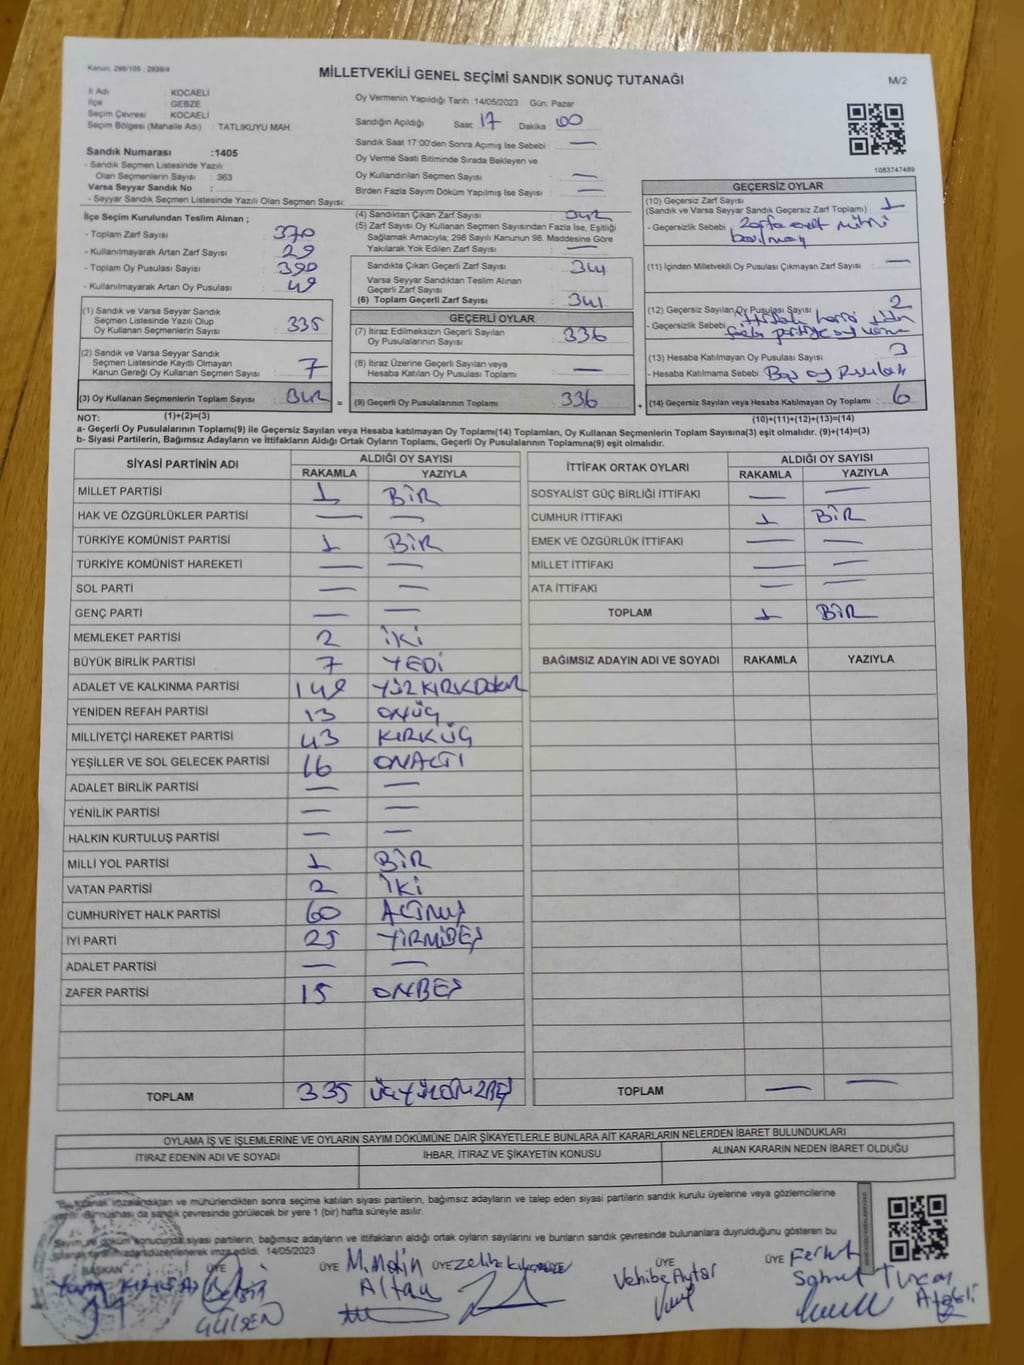 Kanun: 298/105 : 2839/4
MİLLETVEKİLİ GENEL SEÇİMİ SANDIK SONUÇ TUTANAĞI
M/2
İl Adı KOCAELİ
İlçe GEBZE
Seçim Çevresi KOCAELİ
Seçim Bölgesi (Mahalle Adı) : TATLIKUYU MAH.
Sandık Numarası :1405
- Sandık Seçmen Listesinde Yazılı
Olan Seçmenlerin Sayısı : 363
Varsa Seyyar Sandık No :
- Seyyar Sandık Seçmen Listesinde Yazılı Olan Seçmen Sayısı:
Oy Vermenin Yapıldığı Tarih : 14/05/2023 Gün: Pazar
Sandığın Açıldığı Saat: 17 Dakika 00
Sandık Saat 17:00'den Sonra Açımış İse Sebebi : —
Oy Verme Saati Bitiminde Sırada Bekleyen ve
Oy Kullandırılan Seçmen Sayısı : —
Birden Fazla Sayım Döküm Yapılmış İse Sayısı : —
1083747489
İlçe Seçim Kurulundan Teslim Alınan ;
- Toplam Zarf Sayısı : 370
- Kullanılmayarak Artan Zarf Sayısı : 29
- Toplam Oy Pusulası Sayısı : 390
- Kullanılmayarak Artan Oy Pusulası : 49
(1) Sandık ve Varsa Seyyar Sandık
Seçmen Listesinde Yazılı Olup
Oy Kullanan Seçmenlerin Sayısı : 335
(2) Sandık ve Varsa Seyyar Sandık
Seçmen Listesinde Kayıtlı Olmayan
Kanun Gereği Oy Kullanan Seçmen Sayısı : 7
(3) Oy Kullanan Seçmenlerin Toplam Sayısı : 342 =
(1)+(2)=(3)
(4) Sandıktan Çıkan Zarf Sayısı : 342
(5) Zarf Sayısı Oy Kullanan Seçmen Sayısından Fazla İse, Eşitliği
Sağlamak Amacıyla; 298 Sayılı Kanunun 98. Maddesine Göre
Yakılarak Yok Edilen Zarf Sayısı : —
Sandıkta Çıkan Geçerli Zarf Sayısı : 341
Varsa Seyyar Sandıktan Teslim Alınan
Geçerli Zarf Sayısı :
(6) Toplam Geçerli Zarf Sayısı : 341
GEÇERLİ OYLAR
(7) İtiraz Edilmeksizin Geçerli Sayılan
Oy Pusulalarının Sayısı : 336
(8) İtiraz Üzerine Geçerli Sayılan veya
Hesaba Katılan Oy Pusulası Toplamı : —
(9) Geçerli Oy Pusulalarının Toplamı : 336 +
GEÇERSİZ OYLAR
(10) Geçersiz Zarf Sayısı
(Sandık ve Varsa Seyyar Sandık Geçersiz Zarf Toplamı) : 1
- Geçersizlik Sebebi :
(11) İçinden Milletvekili Oy Pusulası Çıkmayan Zarf Sayısı : —
(12) Geçersiz Sayılan Oy Pusulası Sayısı : 2
- Geçersizlik Sebebi :
(13) Hesaba Katılmayan Oy Pusulası Sayısı : 3
- Hesaba Katılmama Sebebi : Boş oy Pusulası
(14) Geçersiz Sayılan veya Hesaba Katılmayan Oy Toplamı : 6
(10)+(11)+(12)+(13)=(14)
NOT:
a- Geçerli Oy Pusulalarının Toplamı(9) ile Geçersiz Sayılan veya Hesaba katılmayan Oy Pusulası(14) Toplamları, Oy Kullanan Seçmenlerin Toplam Sayısına(3) eşit olmalıdır. (9)+(14)=(3)
b- Siyasi Partilerin, Bağımsız Adayların ve İttifakların Aldığı Ortak Oyların Toplamı, Geçerli Oy Pusulalarının Toplamına(9) eşit olmalıdır.
SİYASİ PARTİNİN ADI ALDIĞI OY SAYISI
RAKAMLA YAZIYLA
MİLLET PARTİSİ 1 BİR
HAK VE ÖZGÜRLÜKLER PARTİSİ — —
TÜRKİYE KOMÜNİST PARTİSİ 1 BİR
TÜRKİYE KOMÜNİST HAREKETİ — —
SOL PARTİ — —
GENÇ PARTİ — —
MEMLEKET PARTİSİ 2 İKİ
BÜYÜK BİRLİK PARTİSİ 7 YEDİ
ADALET VE KALKINMA PARTİSİ 149 YÜZKIRKDOKUZ
YENİDEN REFAH PARTİSİ 13 ONÜÇ
MİLLİYETÇİ HAREKET PARTİSİ 43 KIRKÜÇ
YEŞİLLER VE SOL GELECEK PARTİSİ 16 ONALTI
ADALET BİRLİK PARTİSİ — —
YENİLİK PARTİSİ — —
HALKIN KURTULUŞ PARTİSİ — —
MİLLİ YOL PARTİSİ 1 BİR
VATAN PARTİSİ 2 İKİ
CUMHURİYET HALK PARTİSİ 60 ALTMIŞ
İYİ PARTİ 25 YİRMİBEŞ
ADALET PARTİSİ — —
ZAFER PARTİSİ 15 ONBEŞ
TOPLAM 335 ÜÇYÜZOTUZBEŞ
İTTİFAK ORTAK OYLARI ALDIĞI OY SAYISI
RAKAMLA YAZIYLA
SOSYALİST GÜÇ BİRLİĞİ İTTİFAKI — —
CUMHUR İTTİFAKI 1 BİR
EMEK VE ÖZGÜRLÜK İTTİFAKI — —
MİLLET İTTİFAKI — —
ATA İTTİFAKI — —
TOPLAM 1 BİR
BAĞIMSIZ ADAYIN ADI VE SOYADI RAKAMLA YAZIYLA
TOPLAM — —
OYLAMA İŞ VE İŞLEMLERİNE VE OYLARIN SAYIM DÖKÜMÜNE DAİR ŞİKAYETLERLE BUNLARA AİT KARARLARIN NELERDEN İBARET BULUNDUKLARI
İTİRAZ EDENİN ADI VE SOYADI İHBAR, İTİRAZ VE ŞİKAYETİN KONUSU ALINAN KARARIN NEDEN İBARET OLDUĞU
imzalandıktan ve mühürlendikten sonra seçime katılan siyasi partilerin, bağımsız adayların ve talep eden siyasi partilerin sandık kurulu üyelerine veya gözlemcilerine
verilir. Bir nüshası da sandık çevresinde görülecek bir yere 1 (bir) hafta süreyle asılır.
Sayım ve döküm sonucunda siyasi partilerin, bağımsız adayların ve ittifakların aldığı ortak oyların sayılarını ve bunların sandık çevresinde bulunanlara duyrulduğunu gösteren bu
tutanak tarafımızdan düzenlenerek imza edildi. 14/05/2023
BAŞKAN ÜYE ÜYE ÜYE ÜYE ÜYE
M. Metin Altan
Zeliha
Vehibe Aytar
Ferhat
GÜLSEN